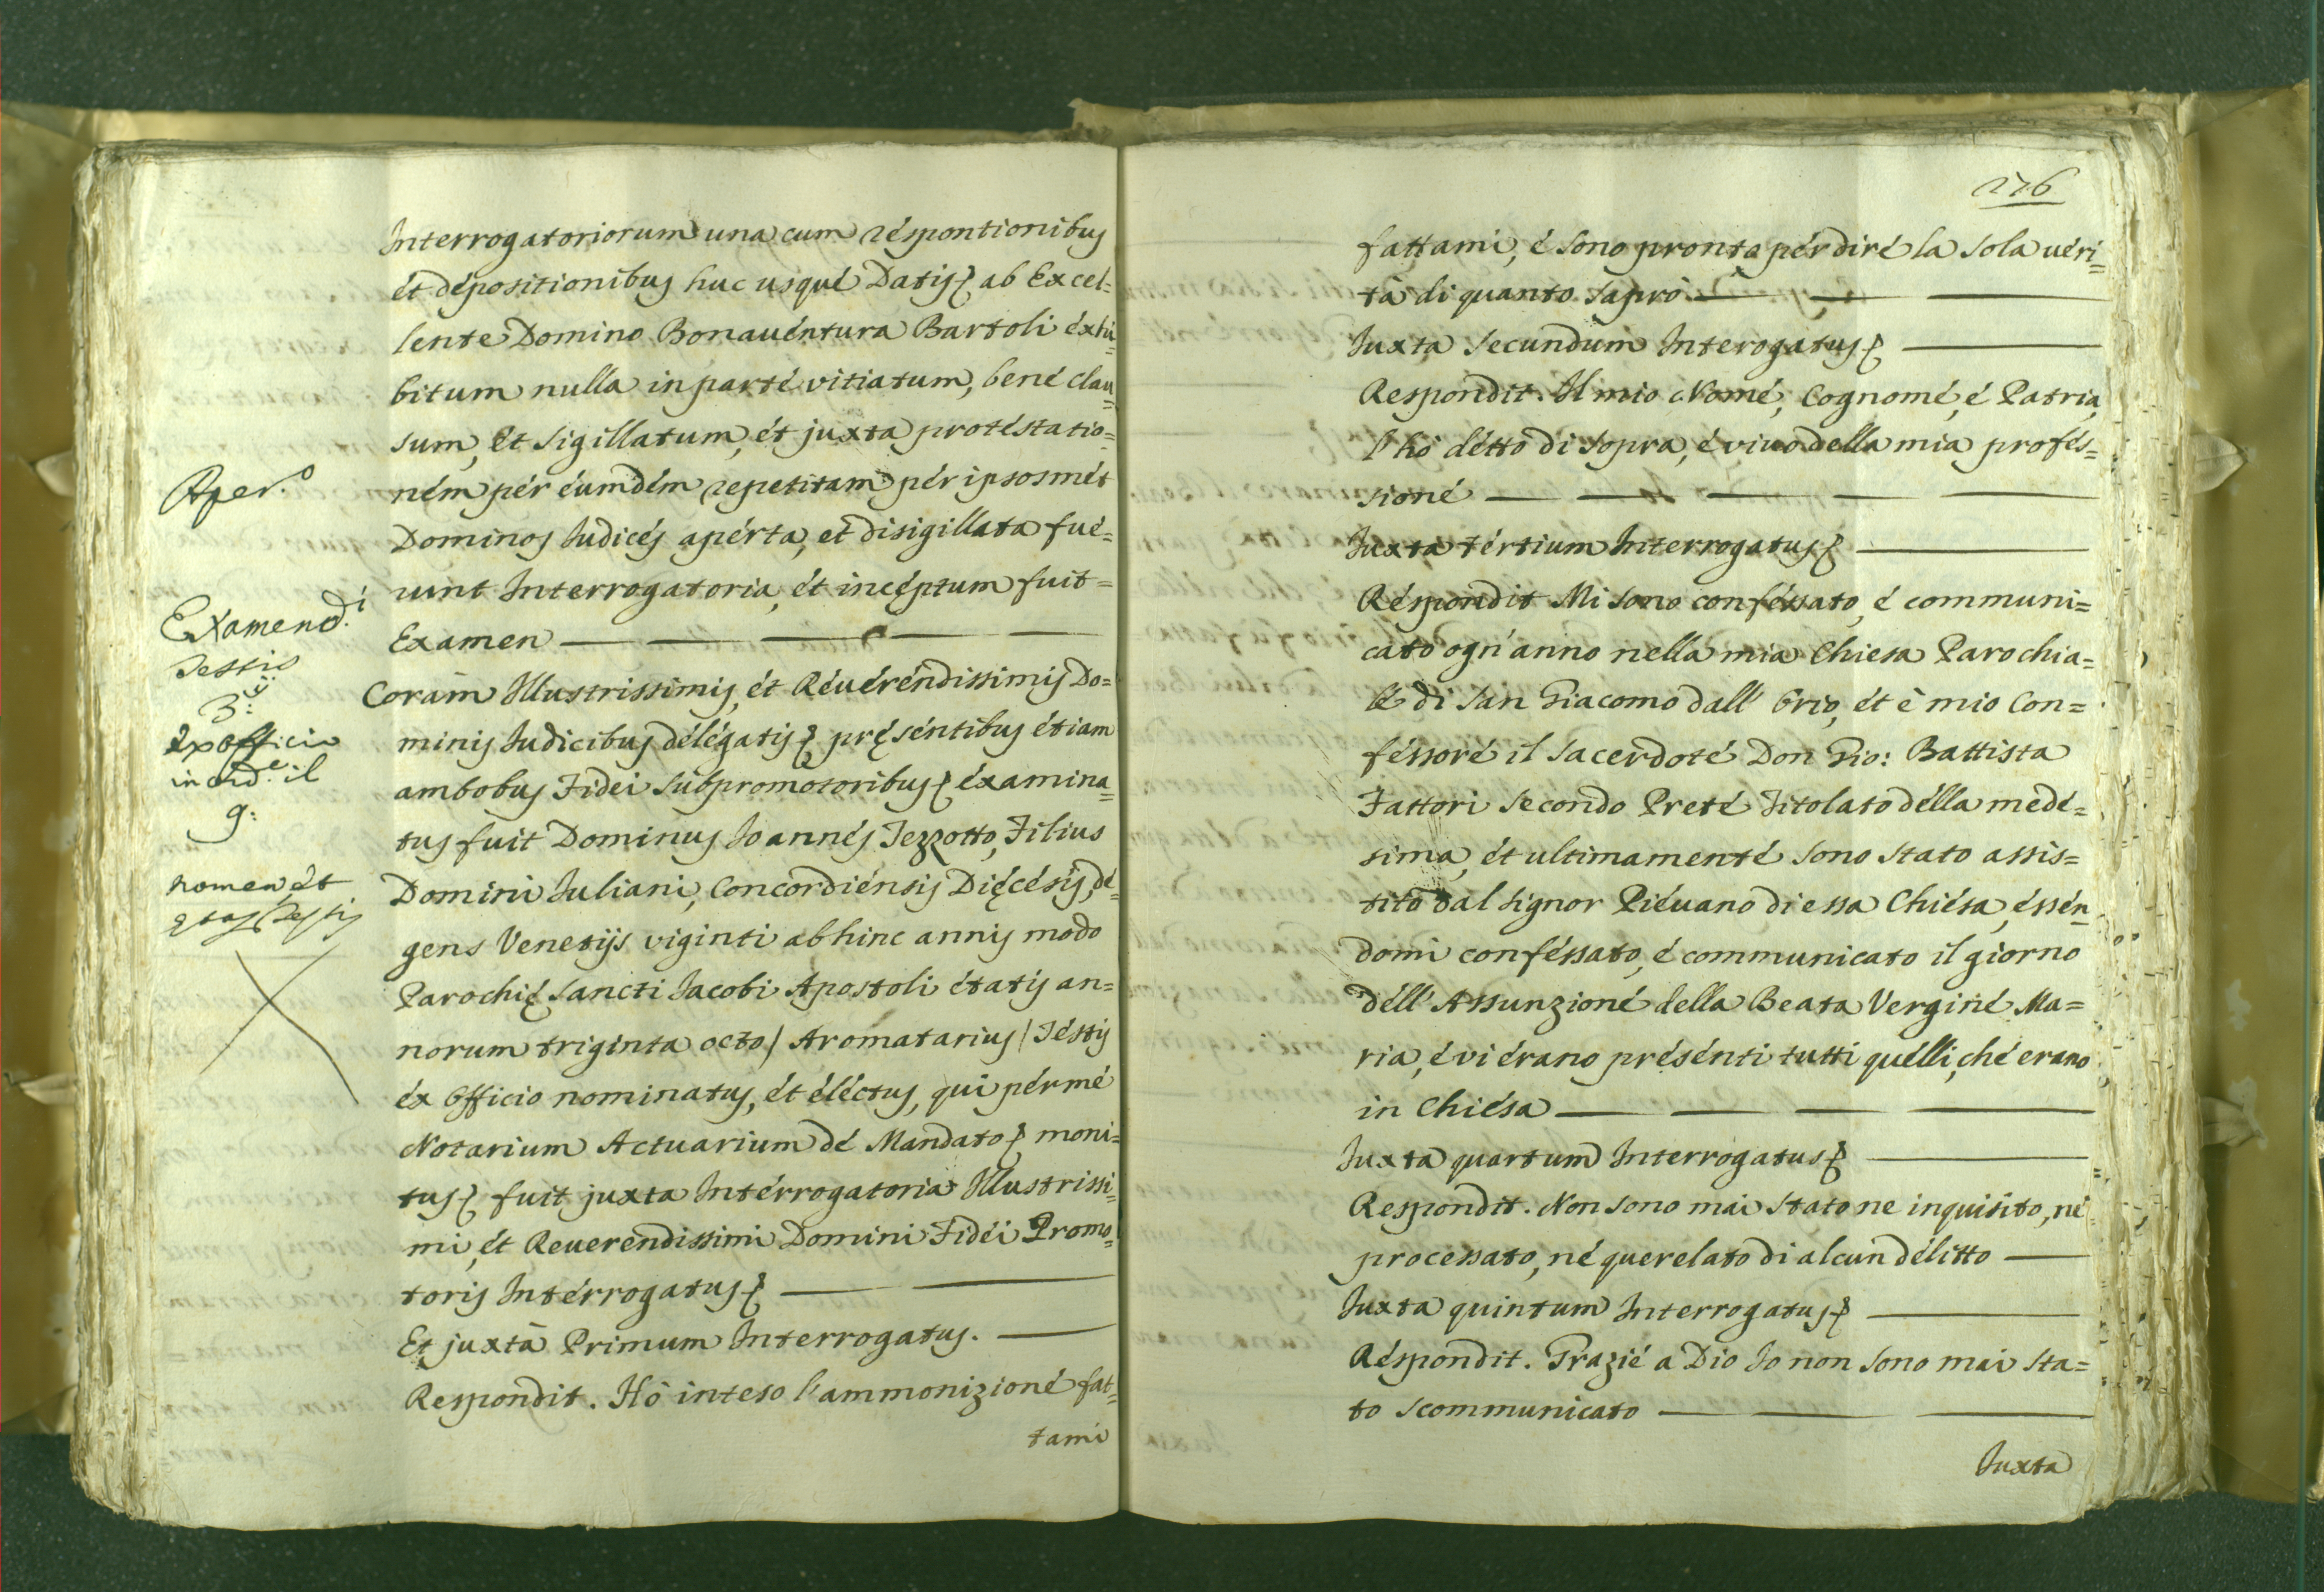 Interrogatoriorum una cum réspontionibus
ét dépositionibus huc usqué Datis ab Excel=
lente Domino Bonauéntura Bartoli éxhi=
bitum nulla in parté vitiatum, bené clau=
sum, et sigillatum, ét juxta protéstatio=
ném pér éumdém repetitam pér ipsosmét
Dominos Iudicés apérta, et disigillata fué=
runt Interrogatoria, ét incéptum fuit=
Examen
Coràm Illustrissimis, ét Réuéréndissimis Do=
minis Iudicibus délégatis pręséntibus étiam
ambobus Fidei Subpromotoribus éxamina=
tus fuit Dominus Ioannés Tezzotto, Filius
Domini Iuliani, Concordiénsis Diécésis, dé=
gens Venetijs viginti abhinc annis modo
Parochię Sancti Iacobi Apostoli étatis an=
norum triginta octo/ Aromatarius/ Téstis
éx Officio nominatus, ét éléctus, qui pér mé
Notarium Actuarium dé Mandato moni=
tus fuit juxta Intérrogatoria Illustrissi=
mi, ét Reuerendissimi Domini Fidéi Promo=
toris Intérrogatus
Et juxtà Primum Interrogatus.
Respondit. Hò inteso l'ammonizioné fat=
tami
Aper.º
Examen d.i
Testis
3.ii
ex officio
in ord.e il
9:
nomen, ét
ętas Testis
276
fattami, é sono pronto pér diré la sola uéri=
tà di quanto saprò
Iuxta Secundum Interogatus
Respondit. Il mio Nomé, Cognomé, é Patria,
l'hò détto di sopra, é viuo della mia profés=
sioné
Iuxta tértium Interrogatus
Réspondit Mi sono conféssato, é communi=
cato ogn'anno nella mia Chiesa Parochia=
lé di San Giacomo dall' Orio, ét è mio Con=
féssoré il Sacerdoté Don Gio: Battista
Fattori Secondo Preté Titolato délla medé=
sima, ét ultimamenté sono stato assis=
tito dal Signor Piéuano di essa Chiésa, éssén
domi conféssato, é communicato il giorno
déll' Assunzioné della Beata Verginé Ma=
ria, é vi érano présénti tutti quélli, ché erano
in Chiésa
Iuxta quartum Interrogatus
Respondit. Non sono mai stato ne inquisito, né
processato, né querelato di alcun délitto
Iuxta quintum Interrogatus
Réspondit. Grazié a Dio Io non sono mai sta=
to scommunicato
Iuxta